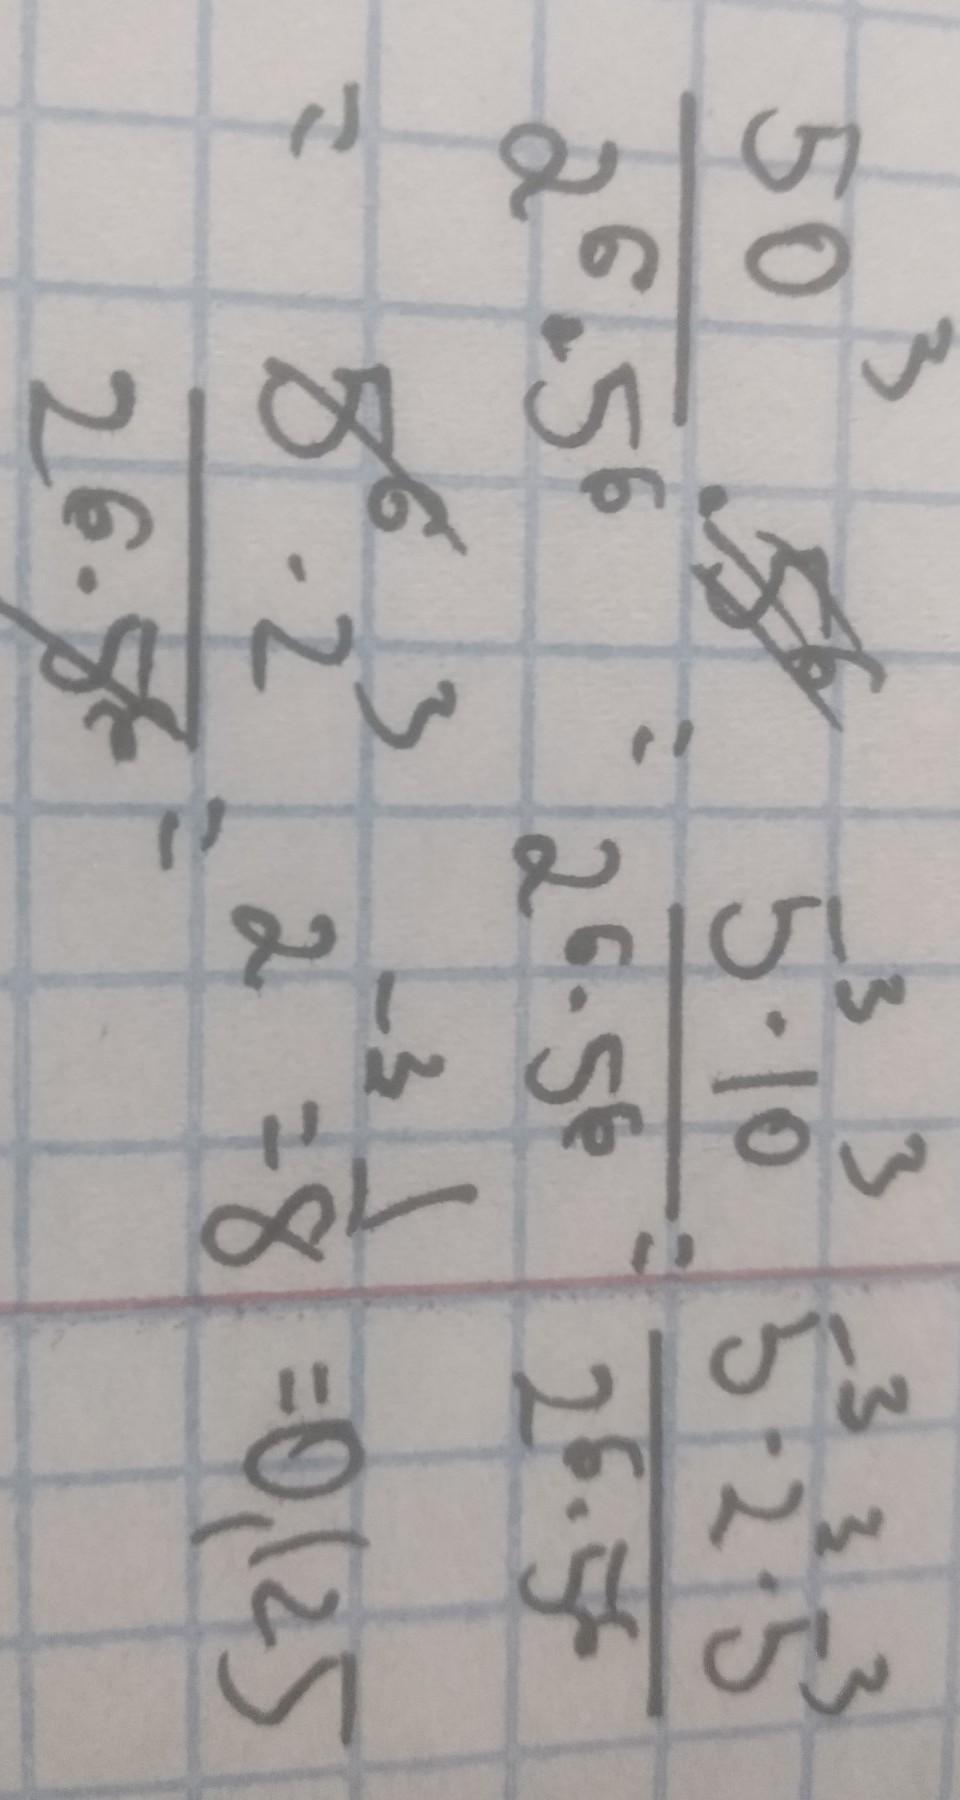 50³/2⁶·5⁶ = 5⁻³·10³/2⁶·5⁶ = 5⁻³·2³·5⁻³/2⁶·5⁶
= 5⁶·2³/2⁶·5⁶ = 2⁻³ = 1/8 = 0,125